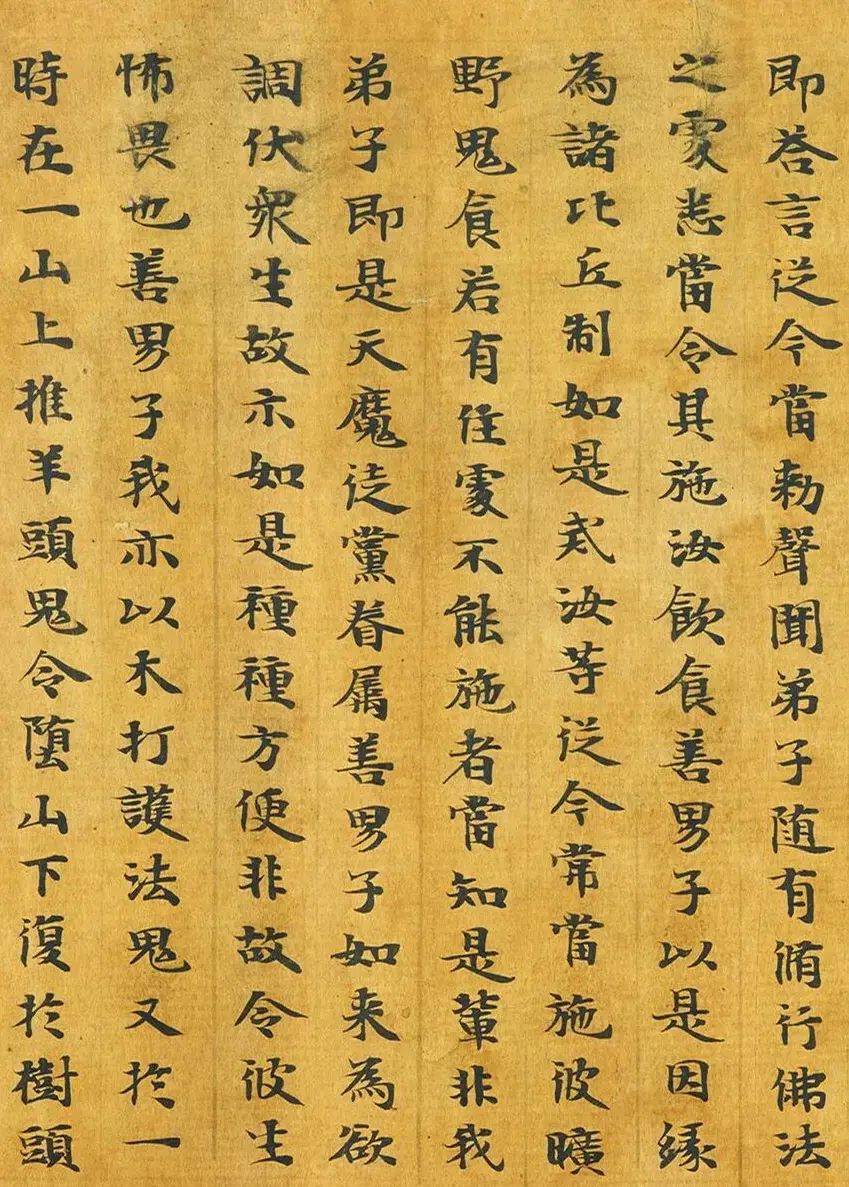 即荅言従今當勑聲聞弟子随有脩行佛法
之處悉當令其施汝飲食善男子以是因縁
為諸比丘制如是戒汝等従今常當施彼曠
野鬼食若有住處不能施者當知是輩非我
弟子即是天魔徒黨眷属善男子如来為欲
調伏衆生故示如是種種方便非故令彼生
怖畏也善男子我亦以木打護法鬼又於一
時在一山上推羊頭鬼令堕山下復於樹頭